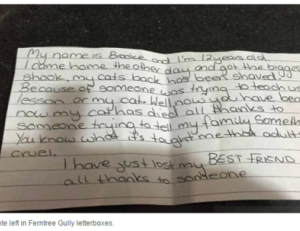 My name is Brooke and I'm 12 years old.
I came home the other day and got the bigges
shock, my cats back had been shaved!
Because of someone was trying to teach us
lesson or my cat. Well now you have bea
now my cat has died all thanks to
someone trying to tell my family Someth
You know what it's taught me that adult
cruel.
I have just lost my BEST FRIEND
all thanks to someone
te left in Ferntree Gully letterboxes.